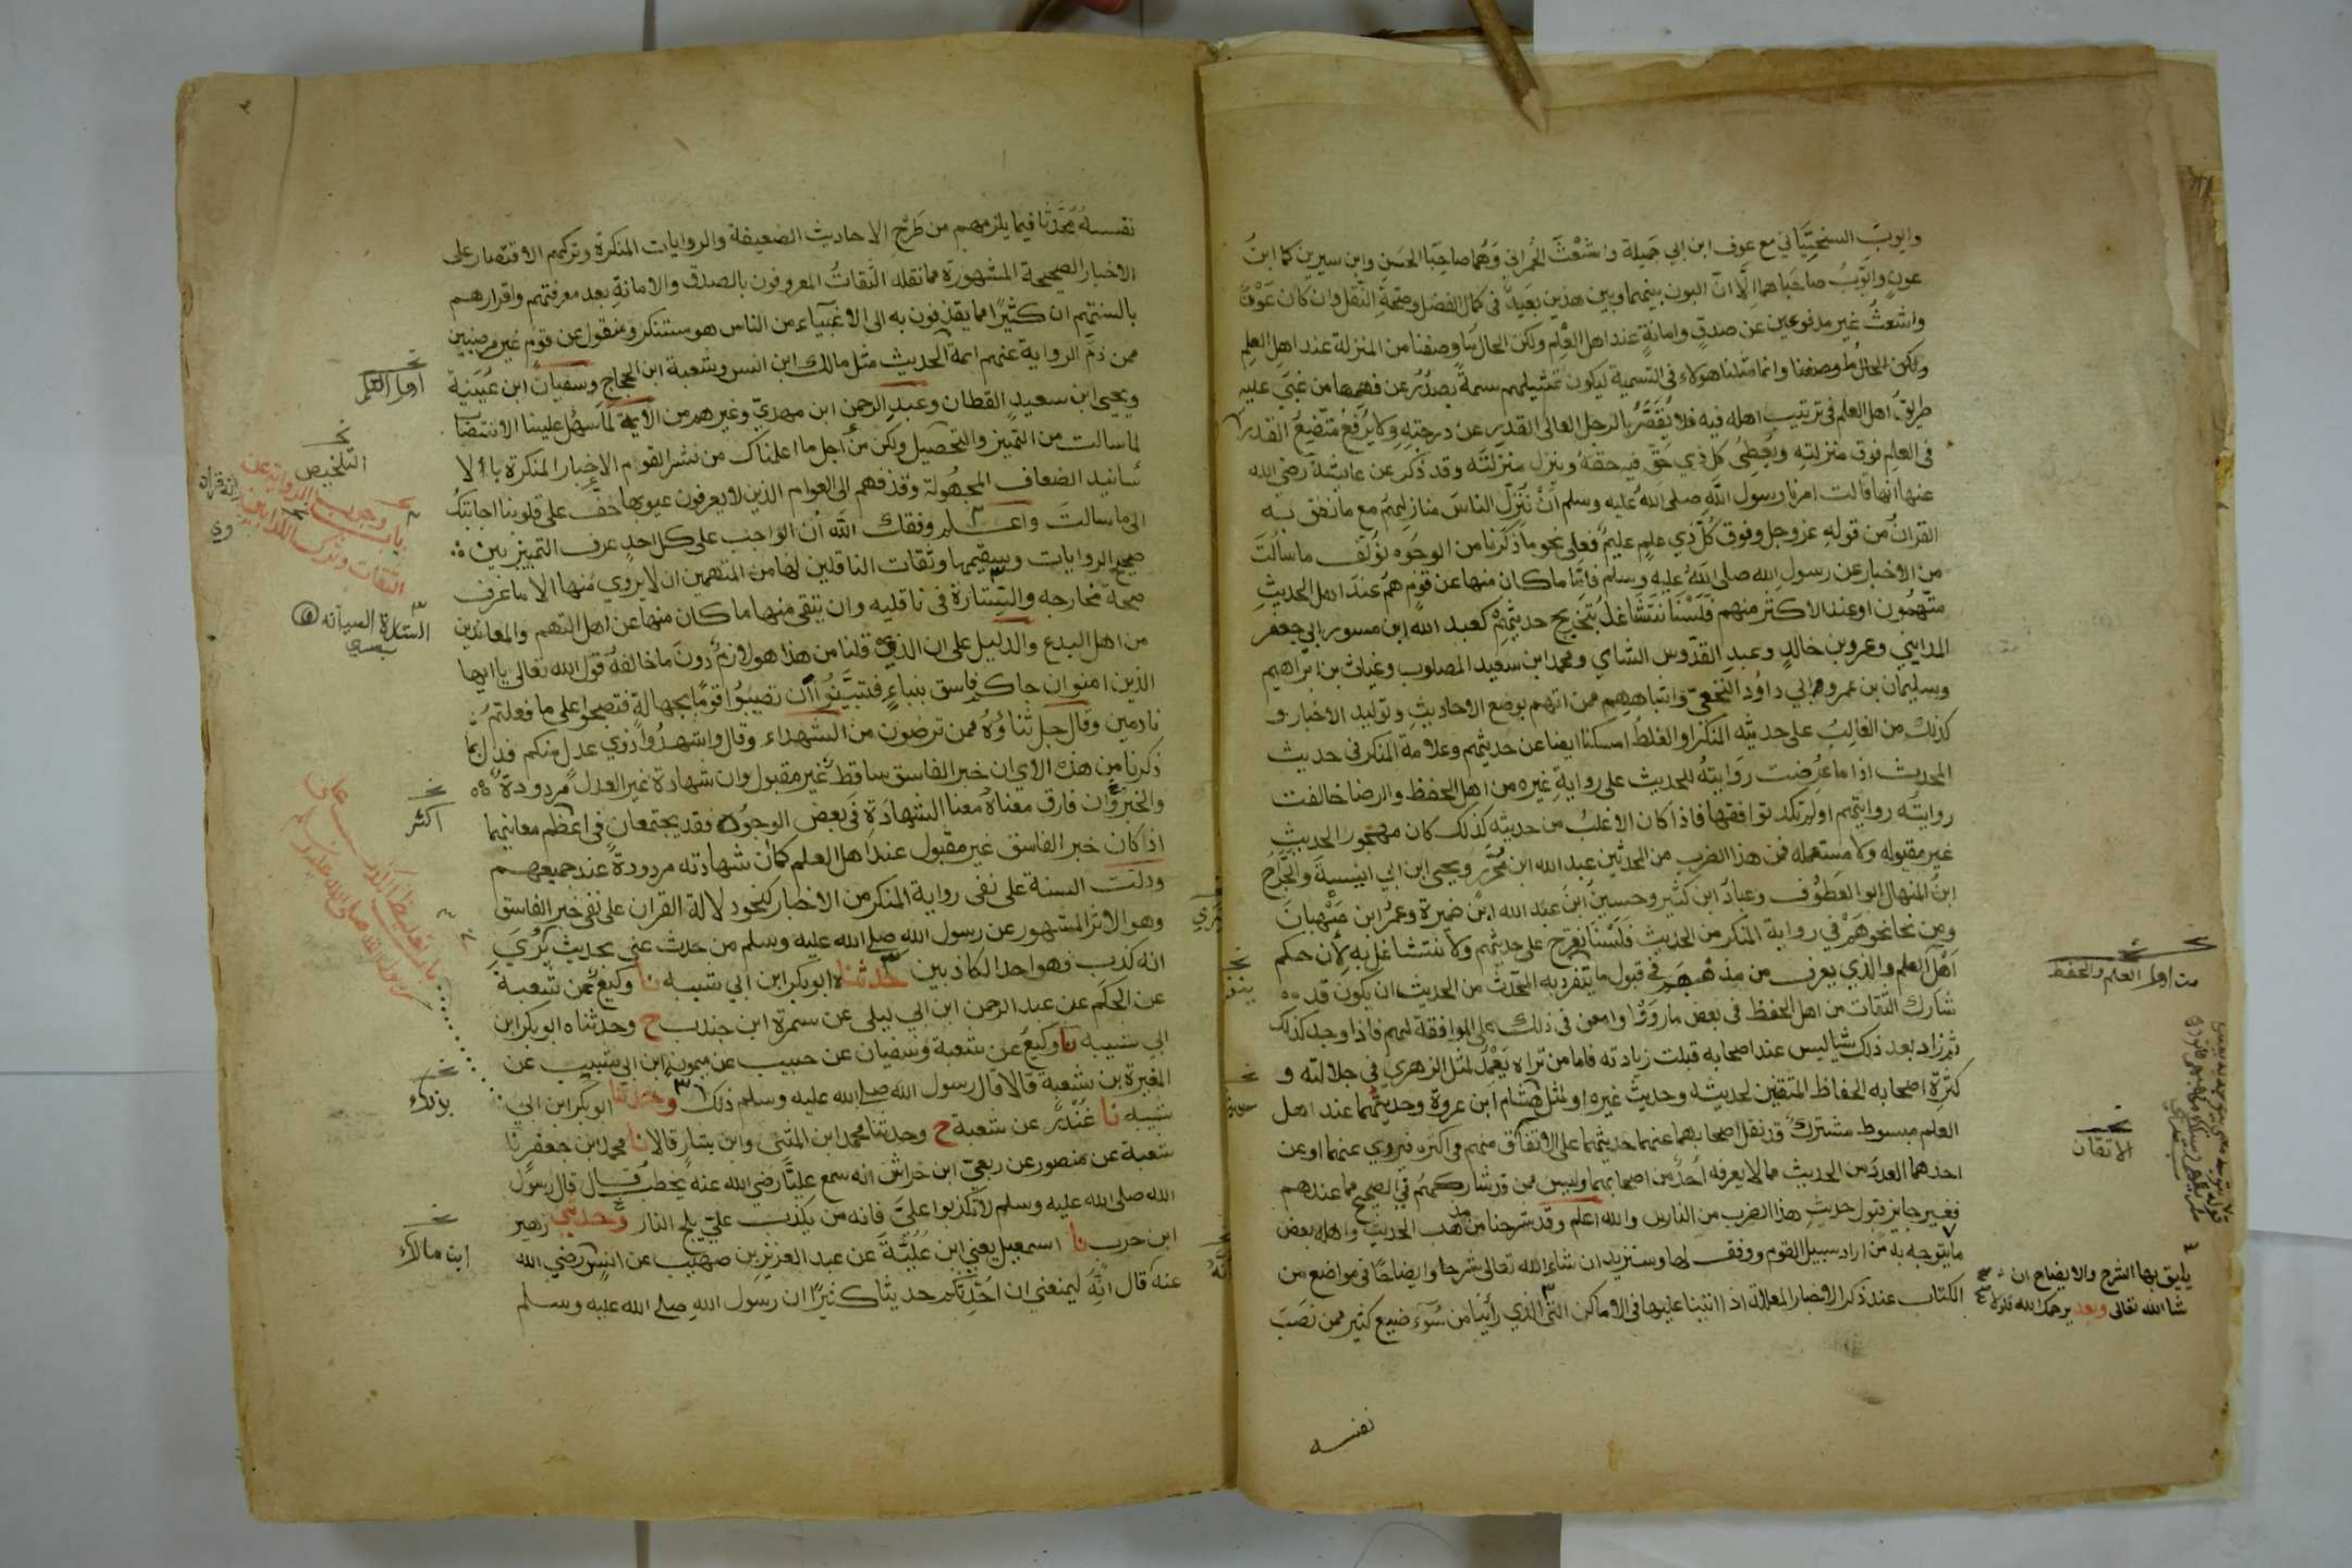 وايوب السختياني مع عوف ابن ابي جميلة واشعث الحمراني وهما صاحبا الحسن وابن سيرين كما ابن
عون وايوب صاحباهما الا ان البون بينهما وبين هذين بعيد في كمال الفضل وصحة النقل وان كان عوف
واشعث غير مدفوعين عن صدق وامانة عند اهل العلم ولكن الحال ما وصفنا من المنزلة عند اهل العلم
ولكن الحال ما وصفنا وانما مثلنا هولاء في التسمية ليكون تمثيلهم سمة يصدر عن فهمها من غبي عليه
طريق اهل العلم في ترتيب اهله فيه فلا يقصر بالرجل العالي القدر عن درجته ولا يرفع متضيع القدر
في العلم فوق منزلته ويعطى كل ذي حق فيه حقه وينزل منزلته وقد ذكر عن عايشة رضي الله
عنها انها قالت امرنا رسول الله صلى الله عليه وسلم ان ننزل الناس منازلهم مع ما نطق به
القران من قوله عز وجل وفوق كل ذي علم عليم فعلى نحو ما ذكرنا من الوجوه نؤلف ما سالت
من الاخبار عن رسول الله صلى الله عليه وسلم فاما ما كان منها عن قوم هم عند اهل الحديث
متهمون او عند الاكثر منهم فلسنا نتشاغل بتخريج حديثهم كعبد الله ابن مسور ابي جعفر
المدايني وعمرو بن خالد وعبد القدوس الشامي ومحمد ابن سعيد المصلوب وغياث بن ابراهيم
وسليمان بن عمرو ابي داود النخعي واشباههم ممن اتهم بوضع الاحاديث وتوليد الاخبار و
كذلك من الغالب على حديثه المنكر او الغلط امسكنا ايضا عن حديثهم وعلامة المنكر في حديث
المحدث اذا ما عرضت روايته للحديث على رواية غيره من اهل الحفظ والرضا خالفت
روايته روايتهم او لم تكد توافقها فاذا كان الاغلب من حديثه كذلك كان مهجور الحديث
غير مقبوله ولا مستعمله فمن هذا الضرب من المحدثين عبد الله ابن محرر ويحيى ابن ابي انيسة والجراح
ابن المنهال ابو العطوف وعباد ابن كثير وحسين ابن عبد الله ابن ضميرة وعمر ابن صهبان
ومن نحا نحوهم في رواية المنكر من الحديث فلسنا نعرج على حديثهم ولا نتشاغل به لان حكم
اهل العلم والذي يعرف من مذهبهم في قبول ما يتفرد به المحدث من الحديث ان يكون قد
شارك الثقات من اهل الحفظ في بعض ما رووا وامعن في ذلك على الموافقة لهم فاذا وجد كذلك
ثم زاد بعد ذلك شيا ليس عند اصحابه قبلت زيادته فاما من تراه يعمد لمثل الزهري في جلالته و
كثرة اصحابه الحفاظ المتقنين لحديثه وحديث غيره او لمثل هشام ابن عروة وحديثهما عند اهل
العلم مبسوط مشترك قد نقل اصحابهما عنهما حديثهما على الاتفاق منهم في اكثره فيروي عنهما او عن
احدهما العدد من الحديث مما لا يعرفه احد من اصحابهما وليس ممن قد شاركهم في الصحيح مما عندهم
فغير جايز قبول حديث هذا الضرب من الناس والله اعلم وقد شرحنا من مذهب الحديث واهله بعض
ما يتوجه به من اراد سبيل القوم ووفق لها وسنزيد ان شاء الله تعالى شرحا وايضاحا في مواضع من
الكتاب عند ذكر الاخبار المعللة اذا اتينا عليها في الاماكن التي الذي راينا من سوء صنيع كثير ممن نصب
نفسه
من اهل العلم والحفظ
الاتقان
يليق بها الشرح والايضاح ان
شا الله تعالى وبعد يرحمك الله فلولا
نفسه محدثا فيما يلزمهم من طرح الاحاديث الضعيفة والروايات المنكرة وتركهم الاقتصار على
الاخبار الصحيحة المشهورة مما نقله الثقات المعروفون بالصدق والامانة بعد معرفتهم واقرارهم
بالسنتهم ان كثيرا مما يقذفون به الى الاغبياء من الناس هو مستنكر ومنقول عن قوم غير مرضيين
ممن ذم الرواية عنهم ايمة الحديث مثل مالك ابن انس وشعبة ابن الحجاج وسفيان ابن عيينة
ويحيى ابن سعيد القطان وعبد الرحمن ابن مهدي وغيرهم من الايمة لما سهل علينا الانتصاب
لما سالت من التمييز والتحصيل ولكن من اجل ما اعلمناك من نشر القوم الاخبار المنكرة بالا
سانيد الضعاف المجهولة وقذفهم الى العوام الذين لا يعرفون عيوبها خف على قلوبنا اجابتك
الى ما سالت واعلم وفقك الله ان الواجب على كل احد عرف التمييز بين
صحيح الروايات وسقيمها وثقات الناقلين لها من المتهمين ان لا يروي منها الا ما عرف
صحة مخارجه والستارة في ناقليه وان يتقي منها ما كان منها عن اهل التهم والمعاندين
من اهل البدع والدليل على ان الذي قلنا من هذا هو لازم دون ما خالفه قول الله تعالى يا ايها
الذين امنوا ان جاكم فاسق بنباء فتبينوا ان تصيبوا قوما بجهالة فتصبحوا على ما فعلتم
نادمين وقال جل ثناؤه ممن ترضون من الشهداء وقال واشهدوا ذوي عدل منكم فدل بما
ذكرنا من هذه الاي ان خبر الفاسق ساقط غير مقبول وان شهادة غير العدل مردودة
والخبر وان فارق معناه معنا الشهادة في بعض الوجوه فقد يجتمعان في اعظم معانيهما
اذا كان خبر الفاسق غير مقبول عند اهل العلم كما ان شهادته مردودة عند جميعهم
ودلت السنة على نفي رواية المنكر من الاخبار كنحو دلالة القران على نفي خبر الفاسق
وهو الاثر المشهور عن رسول الله صلى الله عليه وسلم من حدث عني بحديث يرى
انه كذب فهو احد الكاذبين حدثناه ابو بكر ابن ابي شيبه نا وكيع عن شعبة
عن الحكم عن عبد الرحمن ابن ابي ليلى عن سمرة ابن جندب ح وحدثناه ابو بكر ابن
ابي شيبه نا وكيع عن شعبة وسفيان عن حبيب عن ميمون ابن ابي شبيب عن
المغيرة بن شعبة قالا قال رسول الله صلى الله عليه وسلم ذلك وحدثنا ابو بكر ابن ابي
شيبه نا غندر عن شعبة ح وحدثنا محمد ابن المثنى وابن بشار قالا نا محمد ابن جعفر نا
شعبة عن منصور عن ربعي ابن حراش انه سمع عليا رضي الله عنه يخطب قال قال رسول
الله صلى الله عليه وسلم لا تكذبوا علي فانه من يكذب علي يلج النار وحدثني زهير
ابن حرب نا اسمعيل يعني ابن علية عن عبد العزيز بن صهيب عن انس رضي الله
عنه قال انه ليمنعني ان احدثكم حديثا كثيرا ان رسول الله صلى الله عليه وسلم
التلخيص
باب وجوب الرواية عن
الثقات وترك الكذابين
الستارة الصيانه
اكثر
باب تغليظ الكذب على
رسول الله صلى الله عليه وسلم
ابن مالك